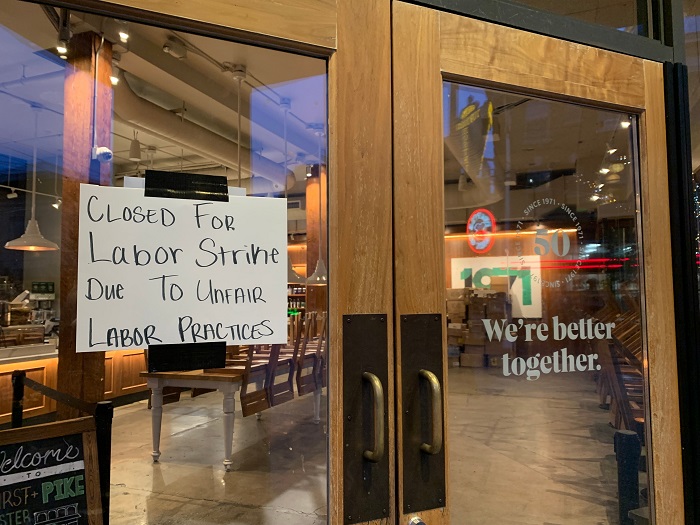 CLOSED FOR
Labor Strike
DUE TO UNFAIR
LABOR PRACTICES
Welcome
TO
FIRST + PIKE
SINCE 1971 · SINCE 1971
50
1971
We're better
together.